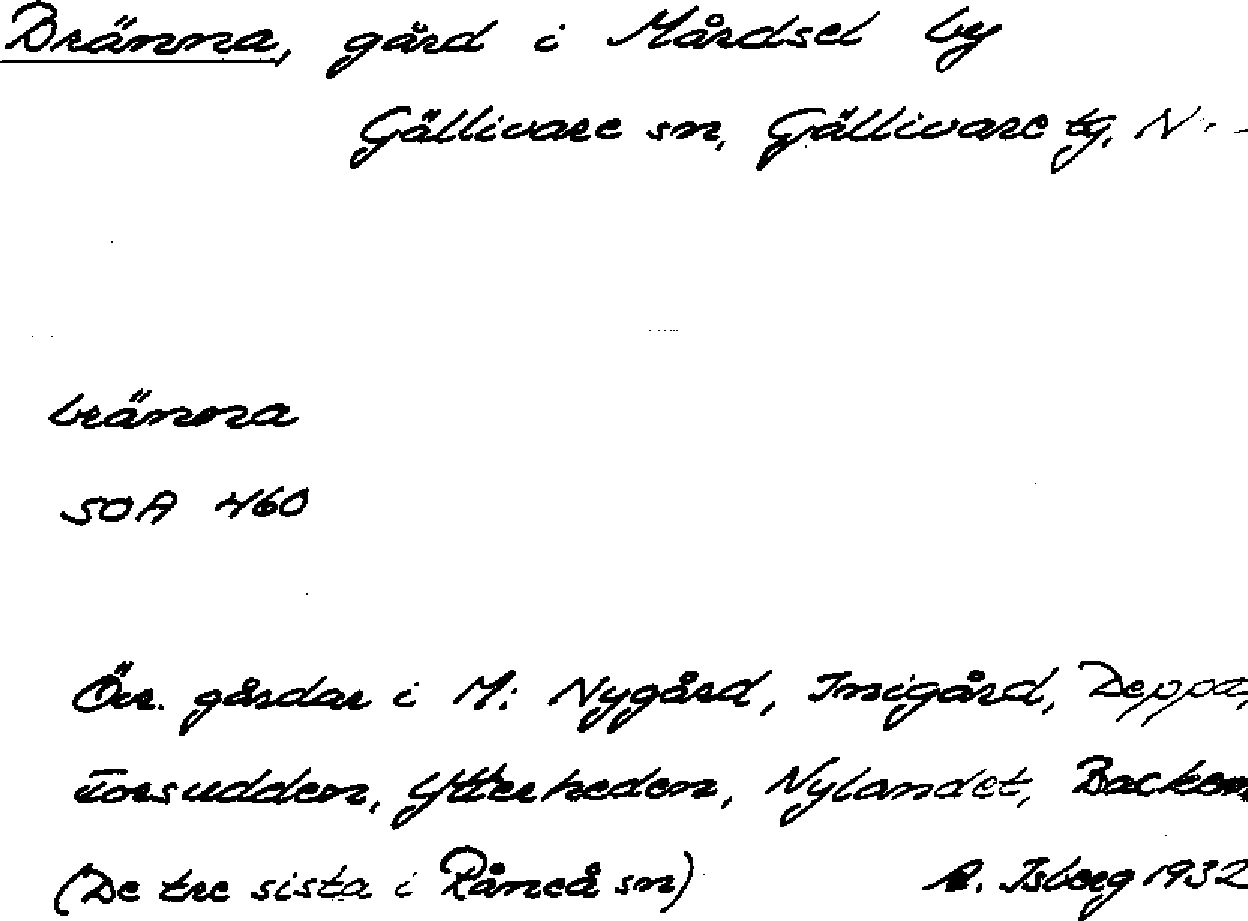 Bränna, gård i Mårdsel by
Gällivare sn, Gällivare tg, N
bränna
SOA 460
Övr. gårdar i M: Nygård, Imigård, Deppa,
Forsudden, Ytterheden, Nylandet, Backen,
(De tre sista i Råneå sn) A. Isberg 1932